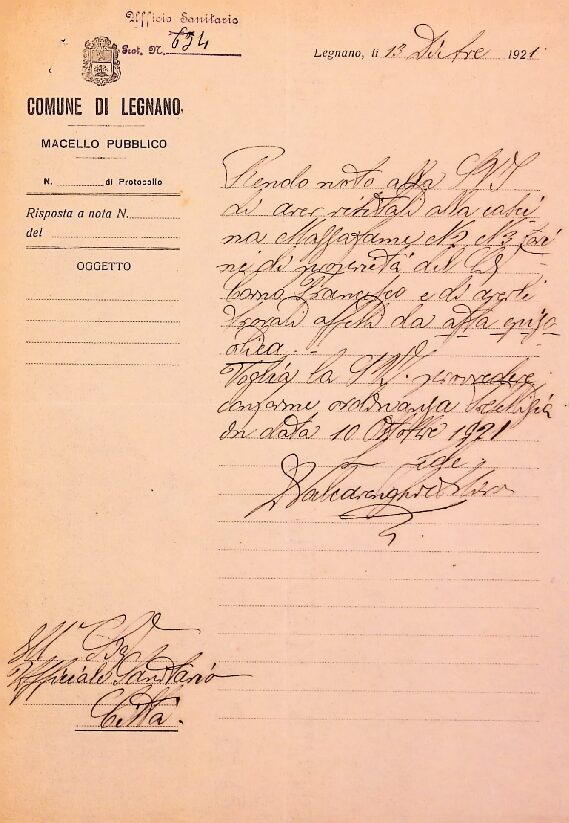 Ufficio Sanitario
Prot. N. 634
Legnano, li 13 Dicbre 1921
COMUNE DI LEGNANO
MACELLO PUBBLICO
N. di Protocollo
Risposta a nota N.
del
OGGETTO
Rendo noto alla S.V.
di aver visitati alla casci
na Mazzafame N2 N3 bovi
ni di proprietà del Sig
Francesco e di averli
trovati affetti da afta epizo
otica.
Voglia la S.V. provvedere
conforme ordinanza Prefettizia
in data 10 Ottobre 1921
In fede
Ill° Sig.
Ufficiale Sanitario
Città.